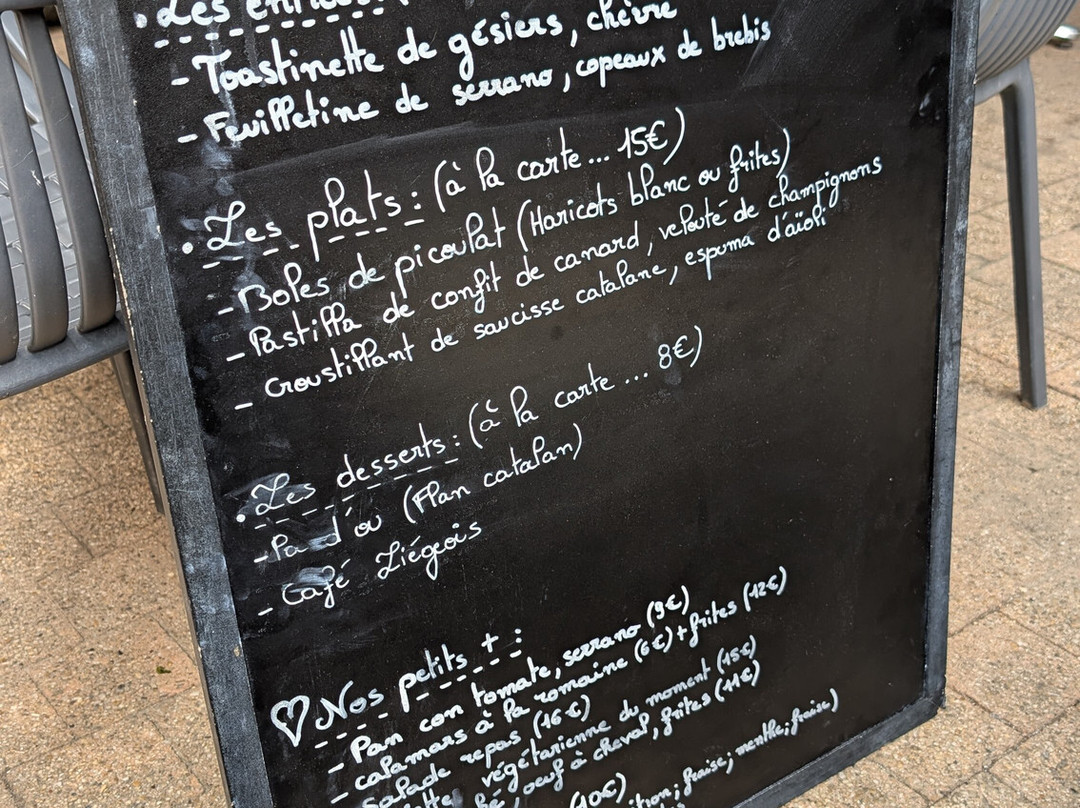 . Les
- Toastinette de gésiers, chèvre
- Feuilletine de serrano, copeaux de brebis
. Les plats : (à la carte... 15€)
- Boles de picoulat (Haricots blanc ou frites)
- Pastilla de confit de canard, velouté de champignons
- Croustillant de saucisse catalane, espuma d'aïoli
. Les desserts : (à la carte ... 8€)
- Pa d'ou (Flan catalan)
- Café Liégeois
♡ Nos petits + :
- Pan con tomate, serrano (9€)
- calamars à la romaine (6€) + frites (12€)
- salade repas (16€)
végétarienne du moment (15€)
, oeuf à cheval, frites (11€)
(10€)
fraise; menthe; fraise)